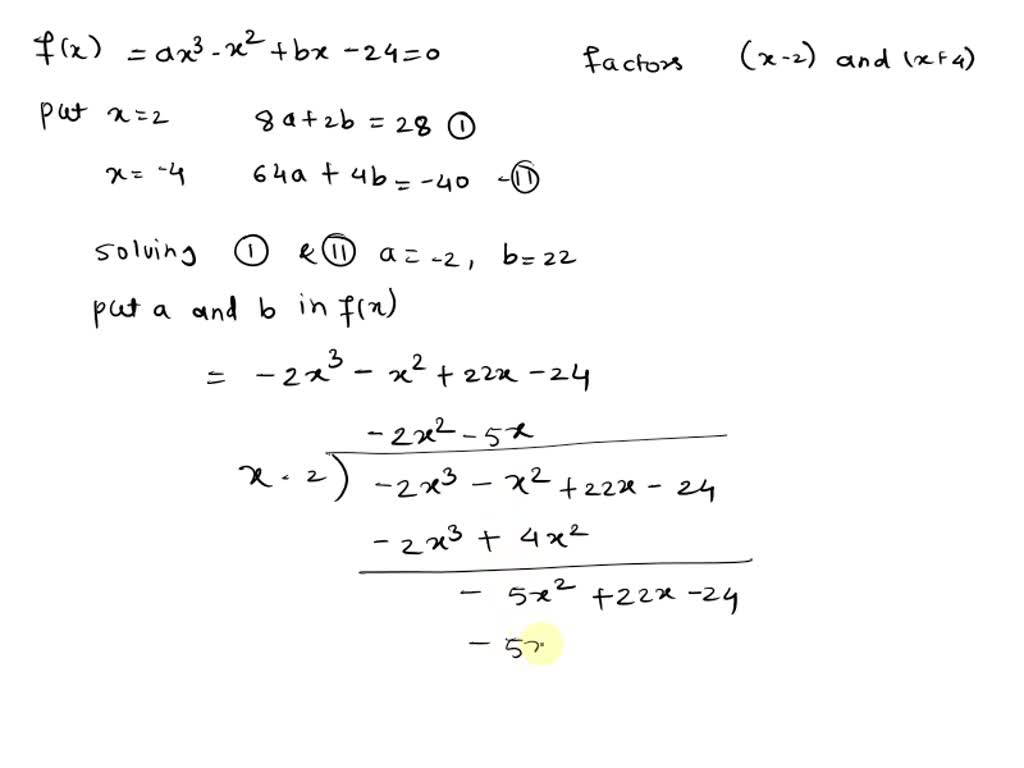 f(x) = ax³ - x² + bx - 24 = 0 factors (x-2) and (x+4)
put x = 2 8a + 2b = 28 ①
x = -4 64a + 4b = -40 - Ⅱ
solving ① & Ⅱ a = -2, b = 22
put a and b in f(x)
= -2x³ - x² + 22x - 24
-2x² - 5x
x - 2) -2x³ - x² + 22x - 24
-2x³ + 4x²
- 5x² + 22x - 24
- 5